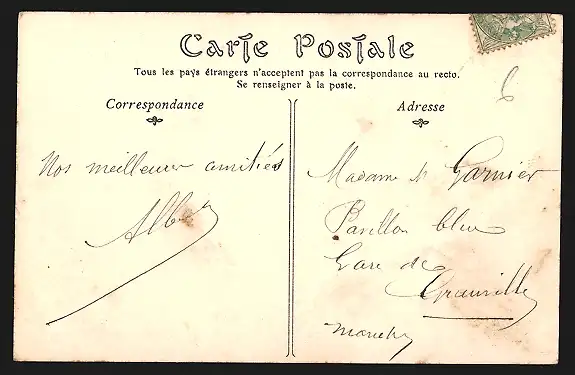 Carte Postale
Tous les pays étrangers n'acceptent pas la correspondance au recto.
Se renseigner à la poste.
Correspondance
Adresse
Nos meilleures amitiés
Madame Garnier
Pavillon bleu
Gare de
Granville
Manche